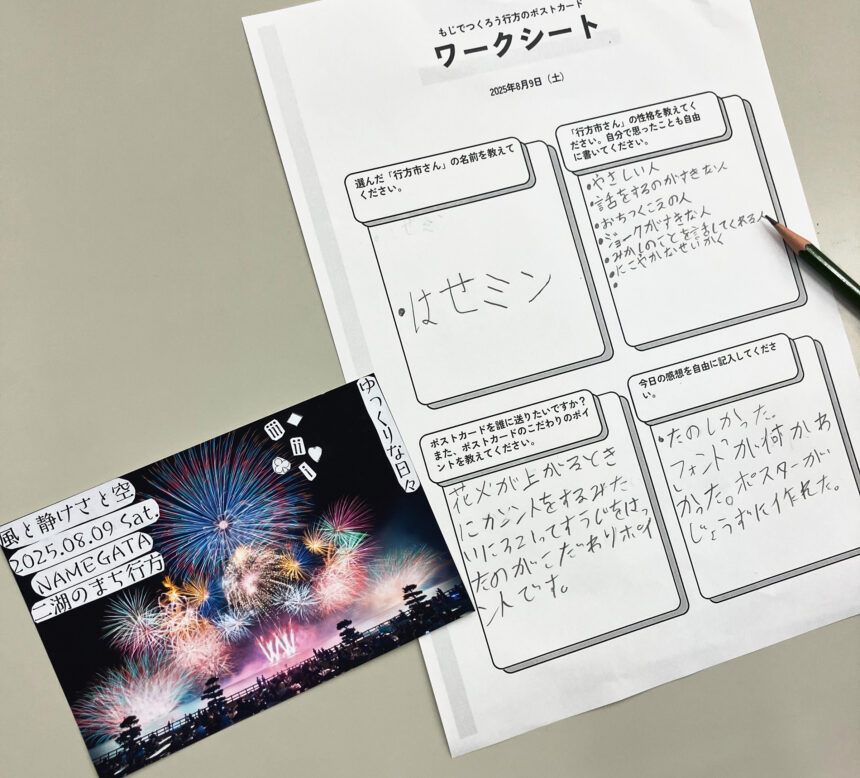 もじでつくろう行方のポストカード
ワークシート
2025年8月9日（土）
選んだ「行方市さん」の名前を教えて
ください。
・はせミン
「行方市さん」の性格を教えてく
ださい。自分で思ったことも自由
に書いてください。
・やさしい人
・話をするのがすきな人
・おちつくこえの人
・ジョークがすきな人
・みかしのことを話してくれる人
・にこやかなせいかく
・
ポストカードを誰に送りたいですか？
また、ポストカードのこだわりのポイ
ントを教えてください。
花火が上がるとき
にカウントをするみた
いに321ってすうじをはっ
たのがこだわりポイ
ントです。
今日の感想を自由に記入してくださ
い。
・たのしかった。
フォントが何かわ
かった。ポスターが
じょうずに作れた。
ゆっくりな日々
iii
ii
i
風と静けさと空
2025.08.09 Sat.
NAMEGATA
二湖のまち行方